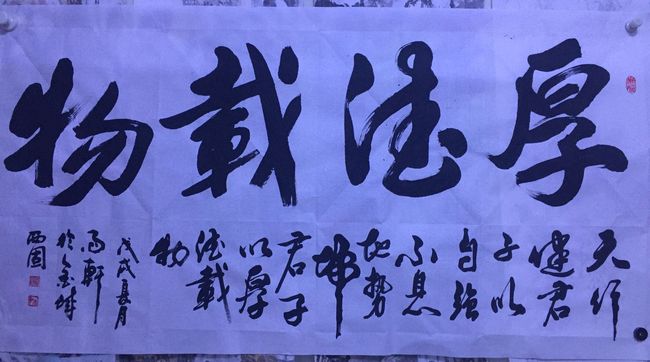 厚德載物
天行
健君
子以
自強
不息
地勢
坤
君子
以厚
德載
物
戊戌夏月
雨軒
於金城
西固